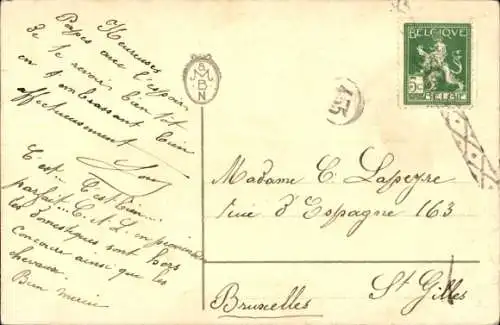 Heureuses
Pâques avec l'espoir
de te revoir bientôt
en t'embrassant bien
affectueusement
C'est... C'est bien...
parfait... C. et L.
les domestiques sont hors
concours ainsi que les
chevaux.
Bien merci
M
B N
435
BELGIQUE
5c
BELGIË
Madame C. Lapeyre
rue d'Espagne 163
St Gilles
Bruxelles